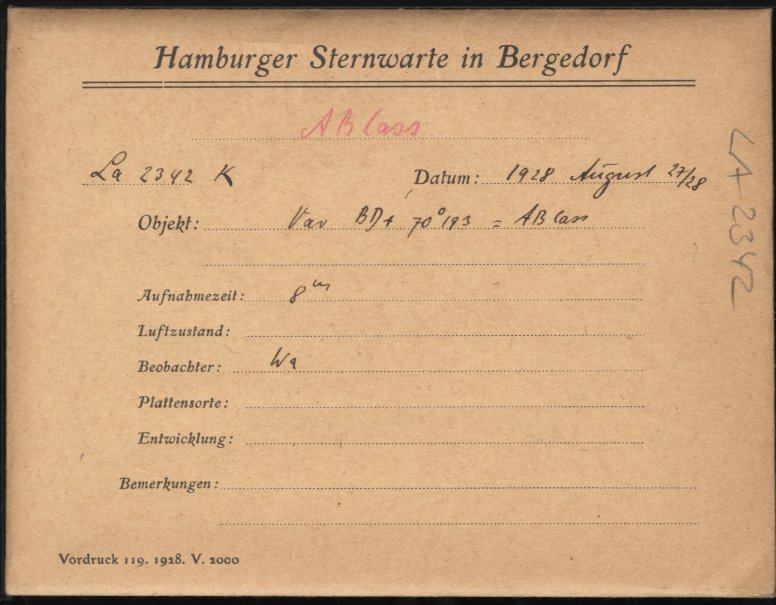 Hamburger Sternwarte in Bergedorf
AB Cass
La 2342 K Datum: 1928 August 27/28
Objekt: Var BD+ 70°193 = AB Cass
Aufnahmezeit: 8m
Luftzustand:
Beobachter: Wa
Plattensorte:
Entwicklung:
Bemerkungen:
Vordruck 119. 1928. V. 2000
LA 2342